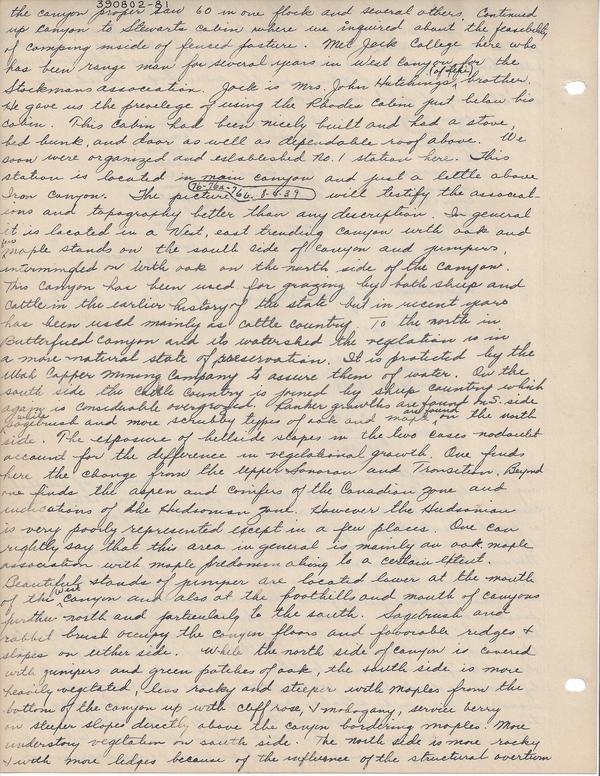 390802-81
the canyon proper saw 60 in one flock and several others. Continued
up canyon to Stewarts cabin where we inquired about the feasibility
of camping inside of fensed pasture. Met Jack College here who
has been range man for several years in West Canyon for the
Stockmans association. Jack is Mrs. John Hutchings brother.
He gave us the previlege of using the Rhodes Cabin just below his
cabin. This cabin had been nicely built and had a stove,
bed bunk, and door as well as dependable roof above. We
soon were organized and established No. 1 station here. This
station is located in main canyon and just a little above
Iron Canyon. The picture 76-76a-76b 8-6-39 will testify the associat-
ions and topography better than any description. In general
it is located in a West, east trending canyon with oak and
maple stands on the south side of canyon and junipers,
intermingled on with oak on the north side of the canyon.
This canyon has been used for grazing by both sheep and
cattle in the earlier history of the state but in recent years
has been used mainly as cattle country. To the north in
Butterfield Canyon and its watershed the vegetation is in
a more natural state of preservation. It is protected by the
Utah Copper Mining Company to assure them of water. On the
south side the cattle country is joined by sheep country which
again is considerable overgrazed. Ranker growths are found on S. side
while sagebrush and more scrubby types of oak and maple are found on the north
side. The exposure of hillside slopes in the two cases nodoubt
account for the difference in vegetational growth. One finds
here the change from the upper Sonoran and Transition. Beyond
one finds the aspen and conifers of the Canadian zone and
indications of the Hudsonian zone. However the Hudsonian
is very poorly represented except in a few places. One can
rightly say that this area in general is mainly an oak, maple
association with maple predominating to a certain extent.
Beautiful stands of juniper are located lower at the mouth
of this West canyon and also at the foothills and mouth of canyons
further north and particularly to the south. Sagebrush and
rabbit brush occupy the canyon floors and favorable ridges +
slopes on either side. While the north side of canyon is covered
with junipers and green patches of oak, the south side is more
heavily vegetated, less rocky and steeper with maples from the
bottom of the canyon up with cliff rose, + mahogany, service berry
on steeper slopes directly above the canyon bordering maples. More
understory vegetation on south side. The north side is more rocky
+ with more ledges because of the influence of the structural overturn